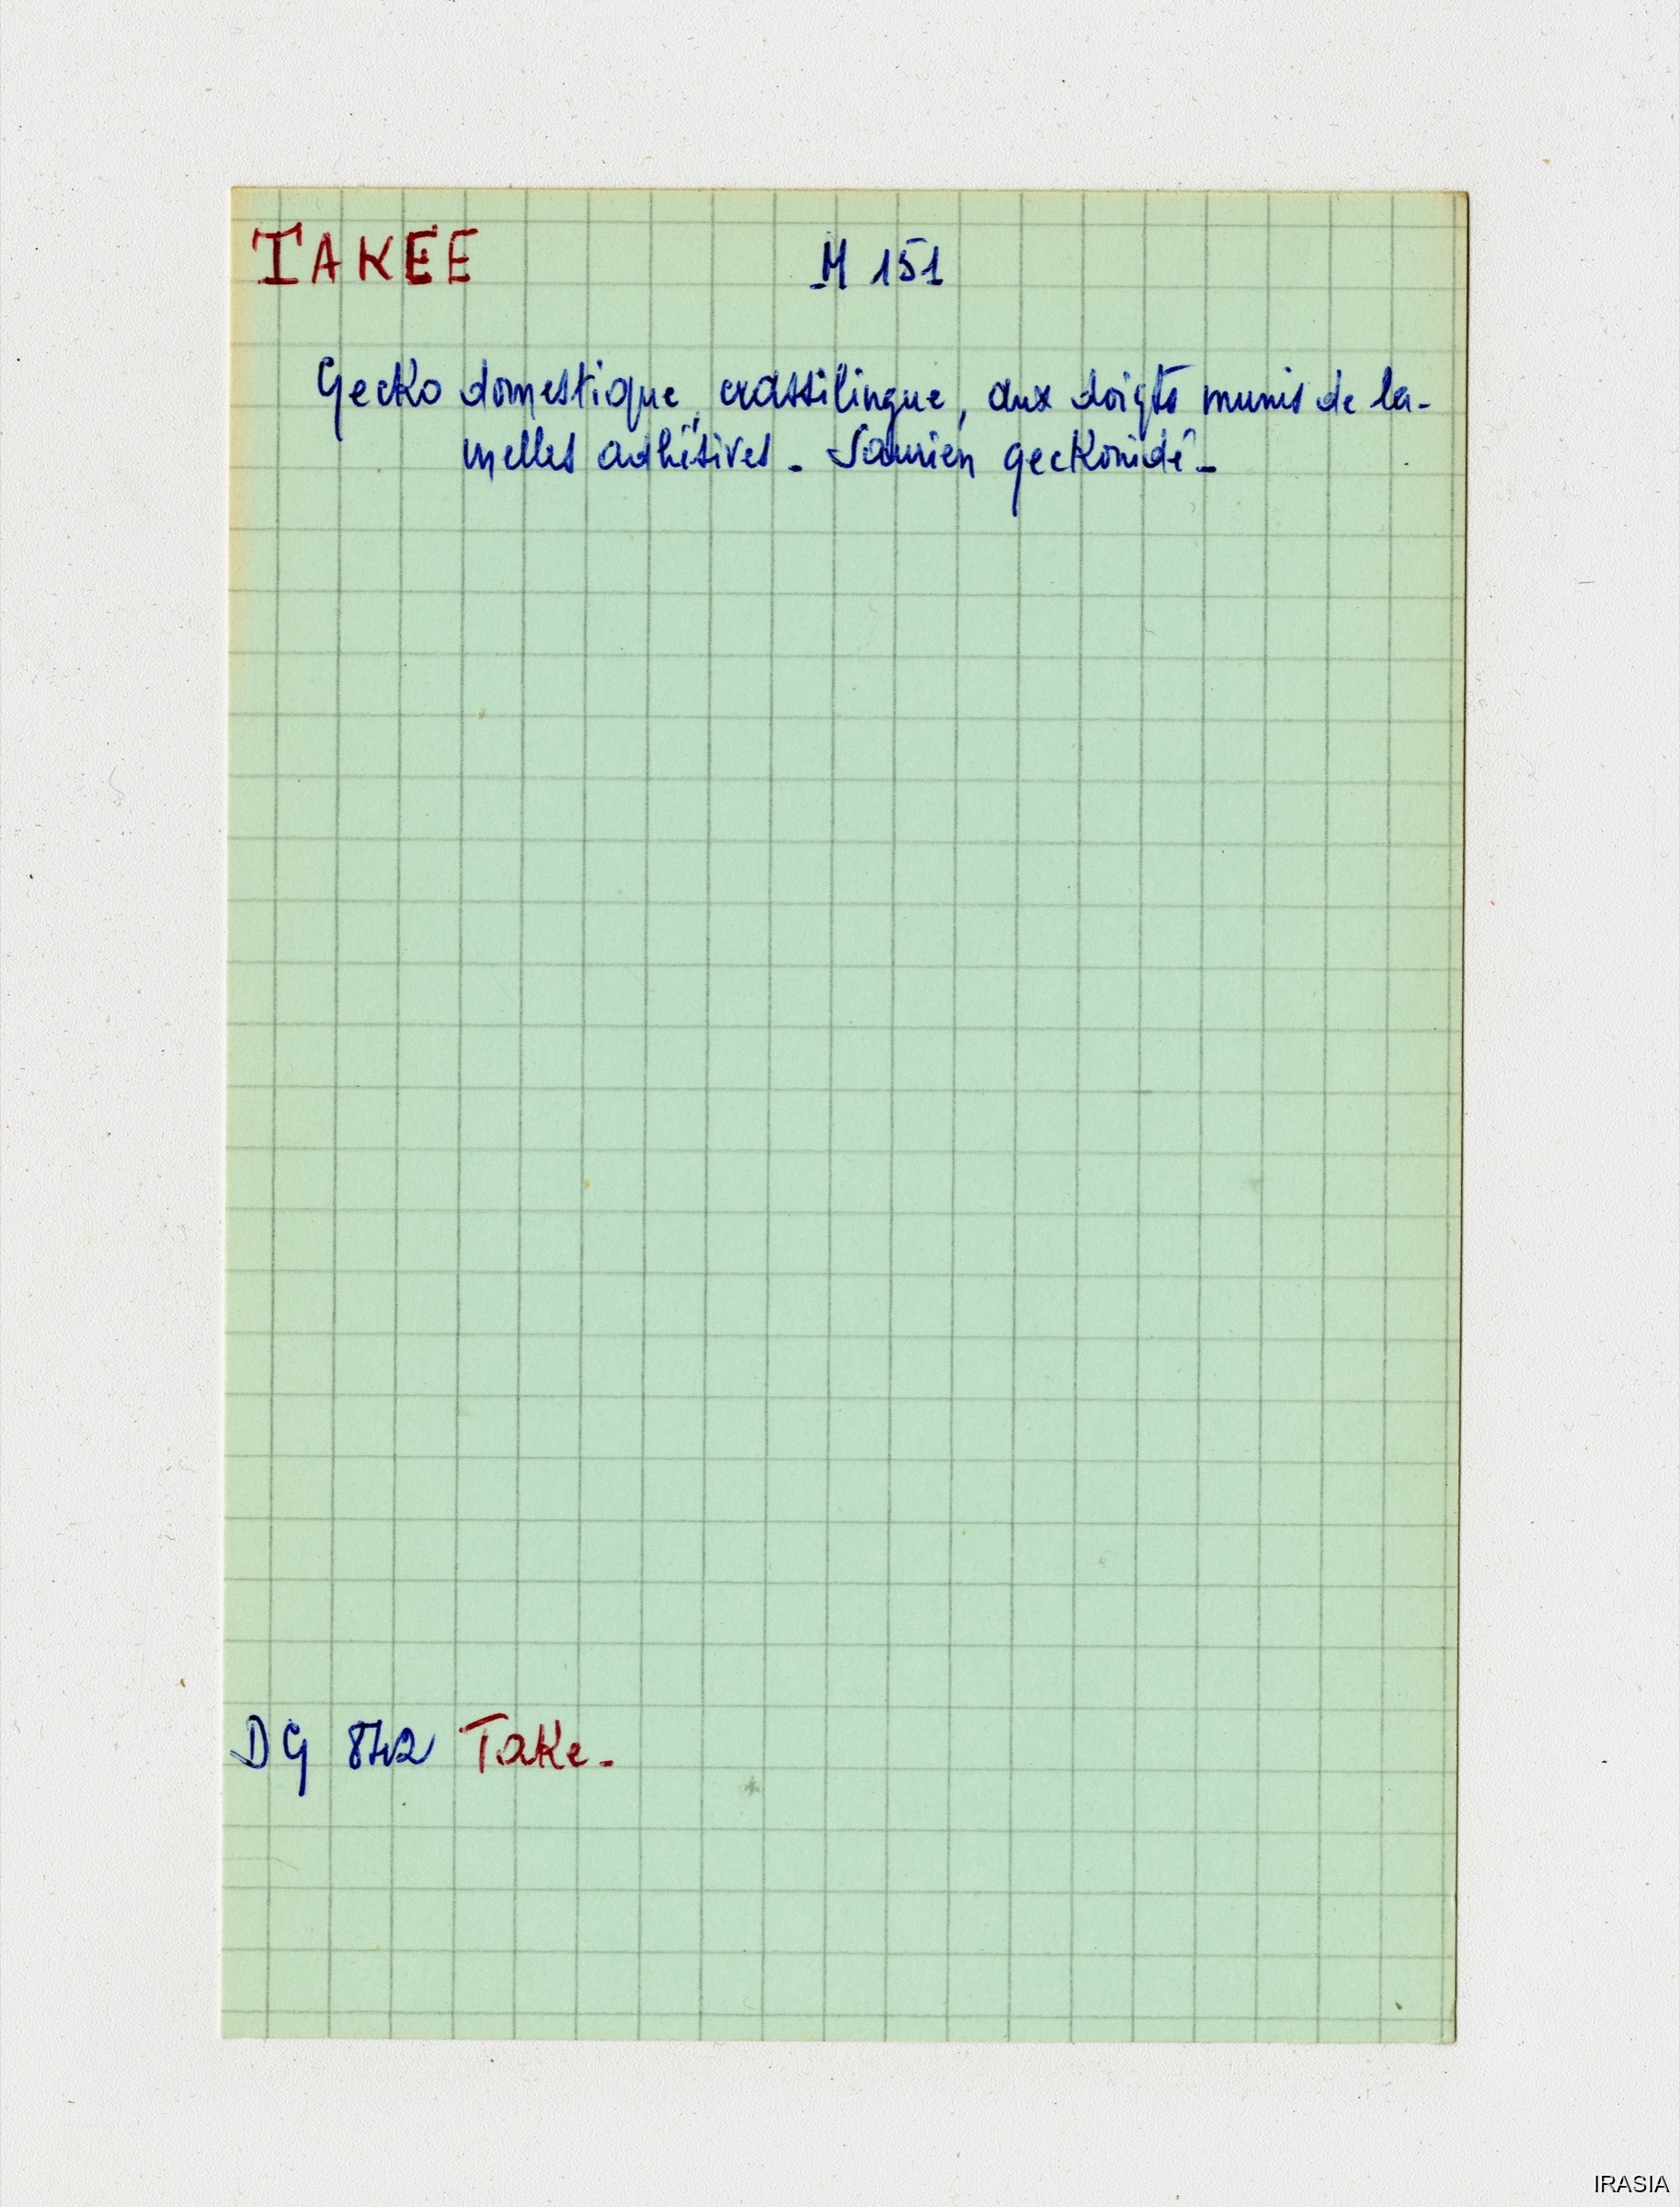 TAKEE M 151
Gecko domestique, crassilingue, aux doigts munis de la-
melles adhésives - Saurien geckonidé -
DG 842 Take -
IRASIA